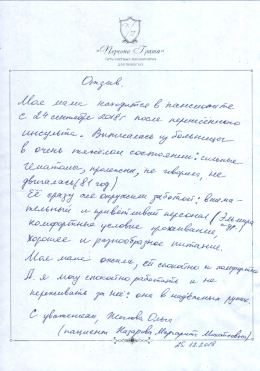 "Первая Грация"
Сеть частных пансионатов
для пожилых
Отзыв.
Моя мама находится в пансионате
с 24 сентября 2018г после перенесённого
инсульта. Выписалась из больницы
в очень тяжёлом состоянии: сильные
гематомы, пролежни, не говорила, не
двигалась (81 год)
Её сразу же окружили заботой: внима-
тельный и приветливый персонал (Эльмира
комфортные условия проживания,
хорошее и разнообразное питание.
Моя мама ожила, ей спокойно и комфортно
А я могу спокойно работать и не
переживать за неё: она в надёжных руках.
С уважением, Ольга
(пациент Назарова Маргарита
25.12.2018